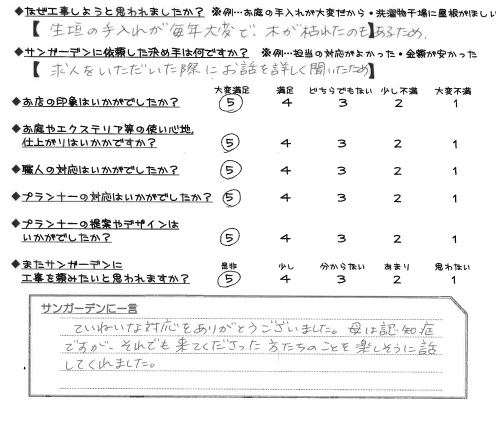 ◆なぜ工事しようと思われましたか？ ※例…お庭の手入れが大変だから・洗濯物干場に屋根がほしい
【 生垣の手入れが毎年大変で、木が枯れたのも】あるため、
◆サンガーデンに依頼した決め手は何ですか？ ※例…担当の対応がよかった・金額が安かった
【 求人をいただいた際にお話を詳しく聞いたため】
大変満足 満足 どちらでもない 少し不満 大変不満
◆お店の印象はいかがでしたか？ 5 4 3 2 1
◆お庭やエクステリア等の使い心地，
仕上がりはいかがですか？ 5 4 3 2 1
◆職人の対応はいかがでしたか？ 5 4 3 2 1
◆プランナーの対応はいかがでしたか？ 5 4 3 2 1
◆プランナーの提案やデザインは
いかがでしたか？ 5 4 3 2 1
◆またサンガーデンに 是非 少し 分からない あまり 思わない
工事を頼みたいと思われますか？ 5 4 3 2 1
サンガーデンに一言
ていねいな対応をありがとうございました。母は認知症
ですが、それでも来てくださった方たちのことを楽しそうに話
してくれました。